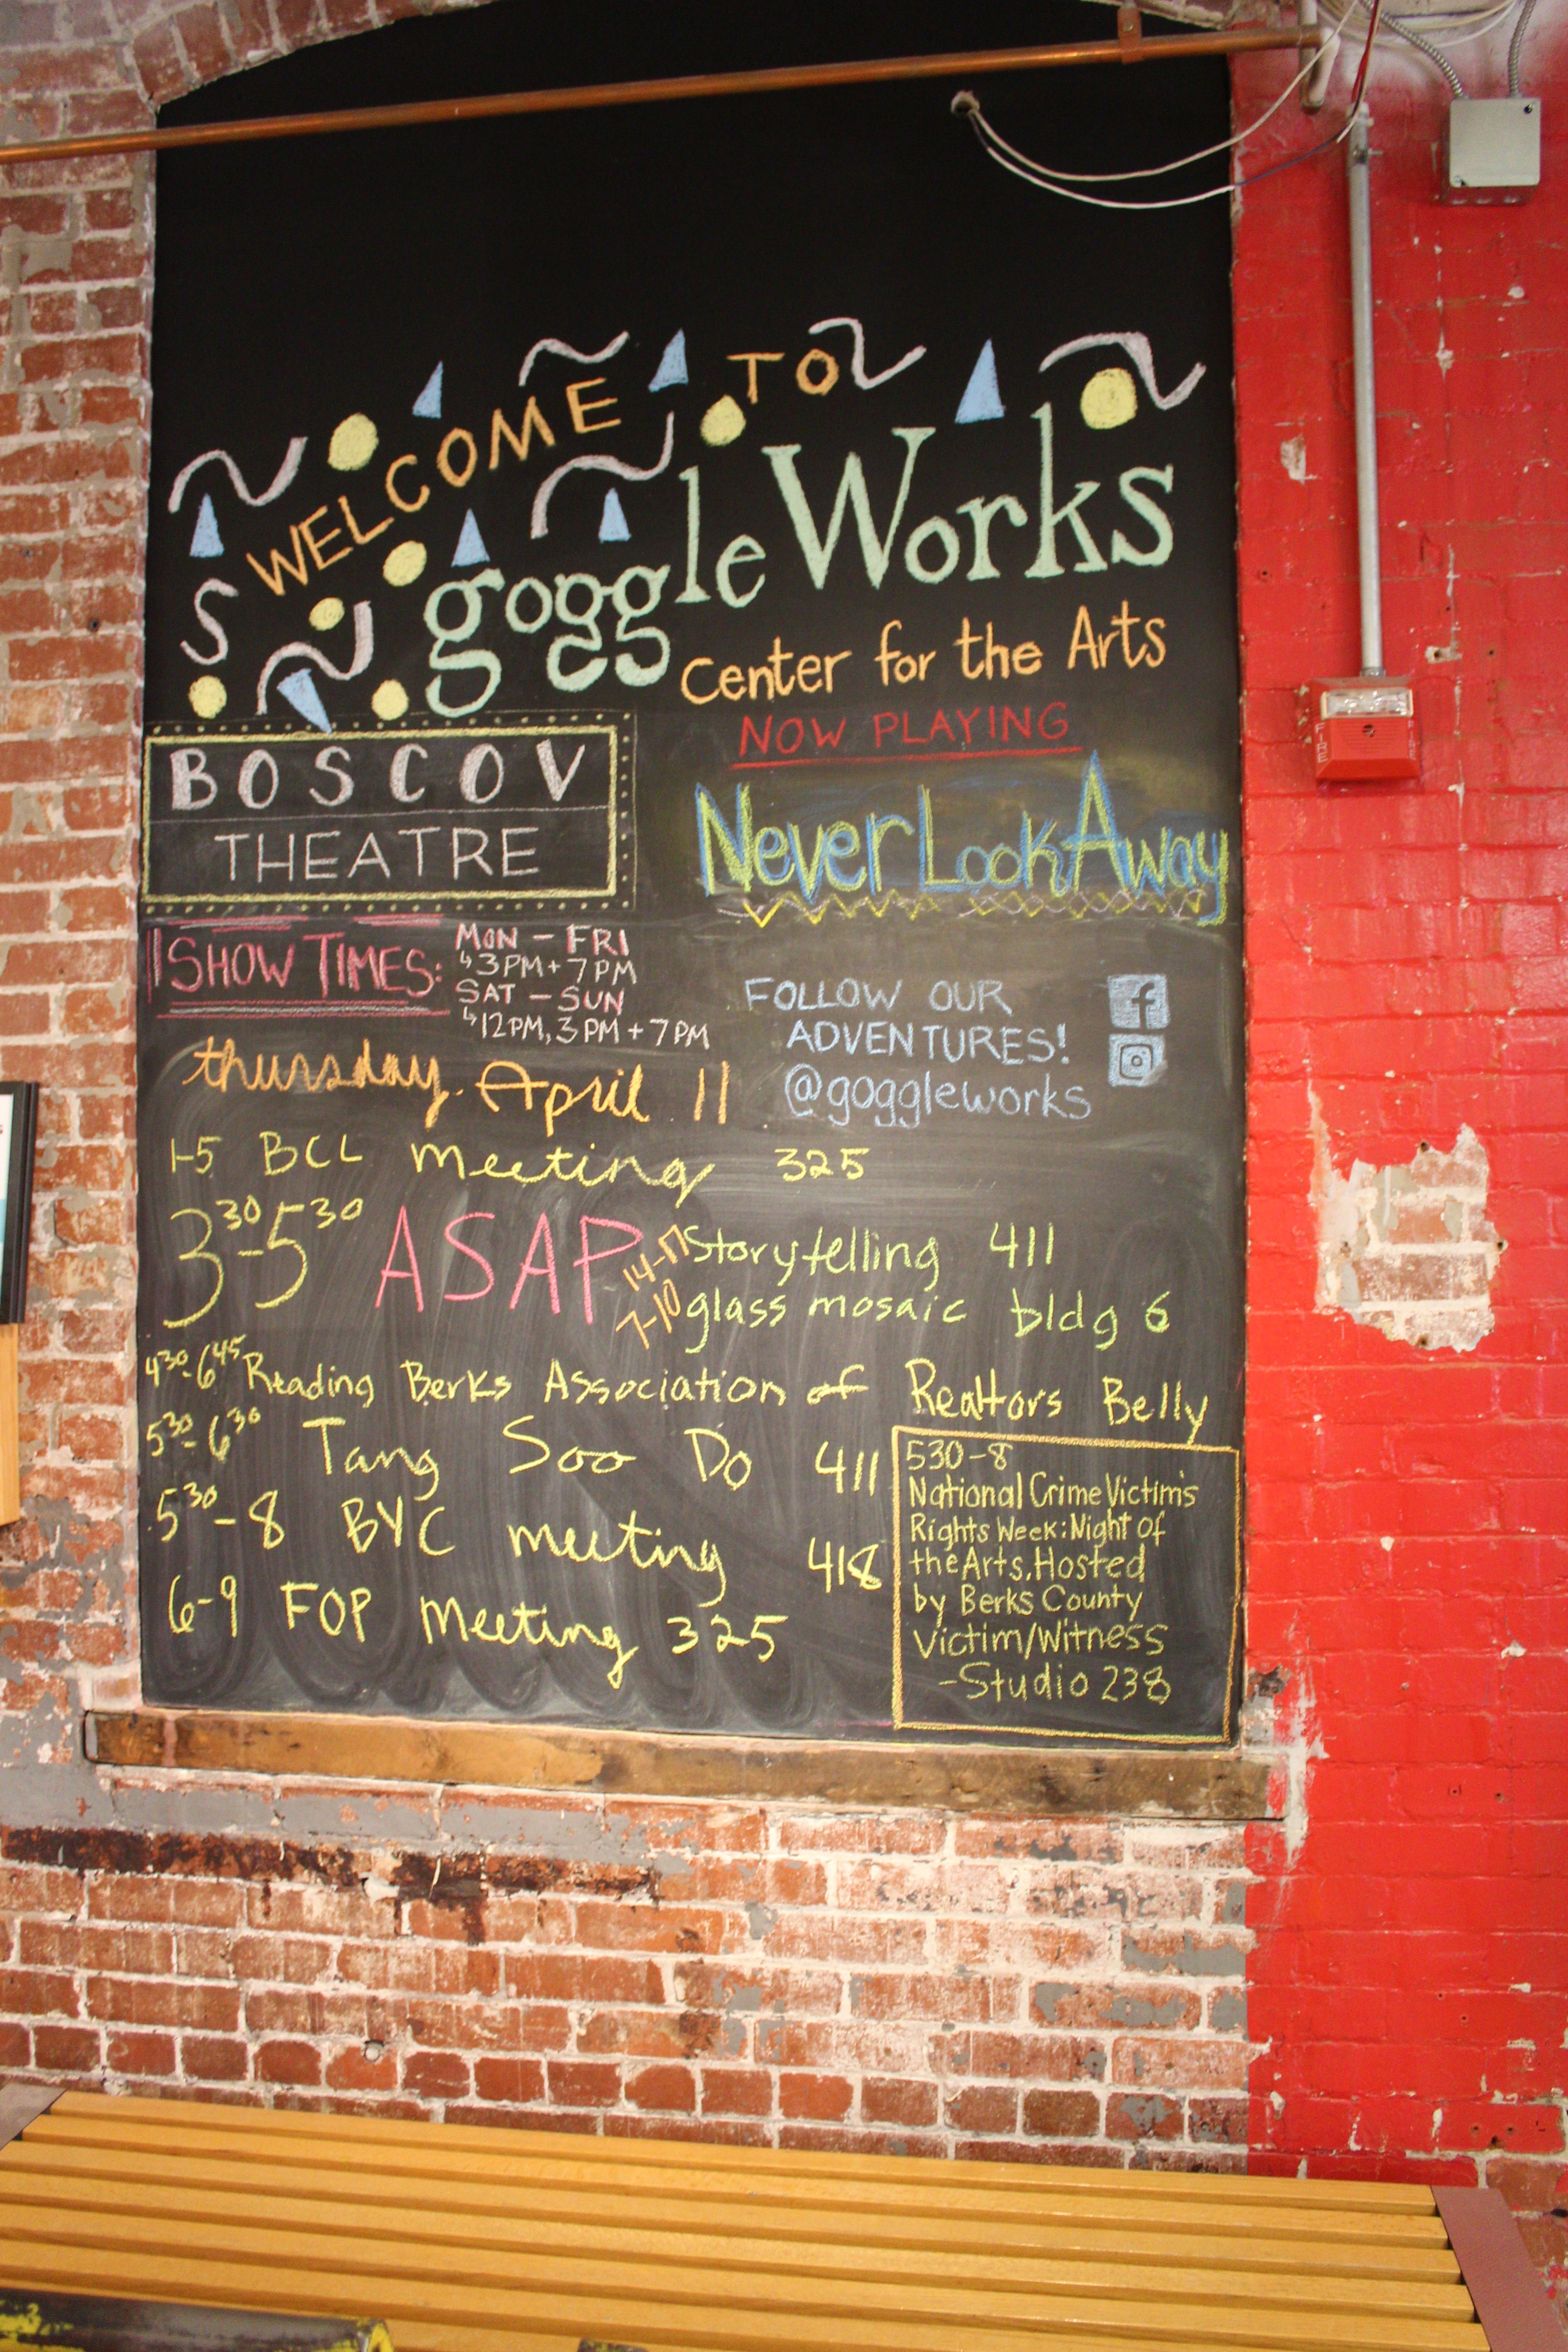 WELCOME TO
goggleWorks
Center for the Arts
BOSCOV
THEATRE
NOW PLAYING
Never Look Away
SHOW TIMES:
MON - FRI
↳3PM + 7PM
SAT - SUN
↳12PM, 3PM + 7PM
FOLLOW OUR
ADVENTURES!
@goggleworks
thursday. April 11
1-5 BCL meeting 325
330-530 ASAP 14-17 Storytelling 411
7-10 glass mosaic bldg 6
430-645 Reading Berks Association of Realtors Belly
530-630 Tang Soo Do 411
530-8 BYC meeting 418
6-9 FOP Meeting 325
530-8
National Crime Victim's
Rights Week: Night of
the Arts. Hosted
by Berks County
Victim/Witness
-Studio 238
FIRE